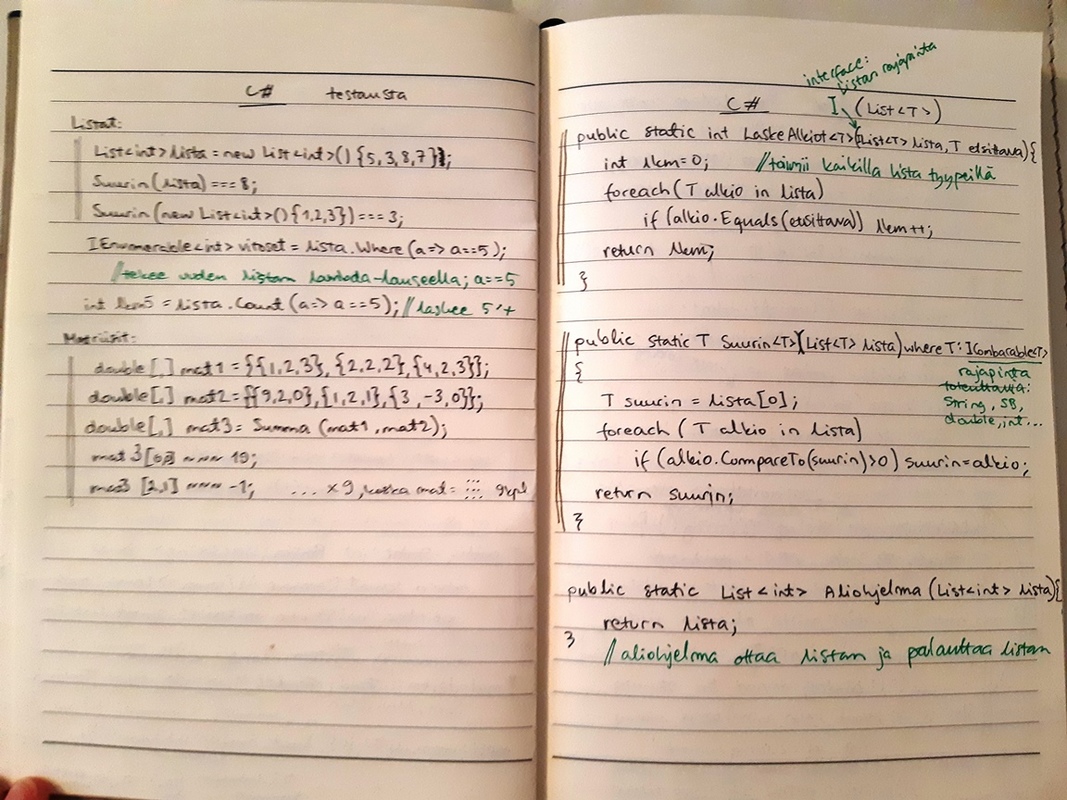 C# testausta
Listat:
List<int> lista = new List<int>() {5, 3, 8, 7};
Suurin(lista) === 8;
Suurin(new List<int>(){1,2,3}) === 3;
IEnumerable<int> vitoset = lista.Where(a=> a==5);
//tekee uuden listan lambda-lauseella; a==5
int lkm5 = lista.Count (a=> a==5); //laskee 5:t
Matriisit:
double[,] mat1 = {{1,2,3}, {2,2,2}, {4,2,3}};
double[,] mat2 = {{9,2,0}, {1,2,1}, {3,-3,0}};
double[,] mat3 = Summa (mat1, mat2);
mat3[0,0] ~~~ 10;
mat3 [2,1] ~~~ -1; ... x9, koska mat=
interface:
listan rajapinta
C# I (List<T>)
public static int LaskeAlkiot<T>(List<T> lista, T etsittava){
int lkm=0; //toimii kaikilla lista tyypeillä
foreach(T alkio in lista)
if (alkio.Equals(etsittava)) lkm++;
return lkm;
}
public static T Suurin<T>(List<T> lista) where T: IComparable<T>
{ rajapinta
T suurin = lista[0]; String, SB,
foreach (T alkio in lista) double, int...
if (alkio.CompareTo(suurin)>0) suurin=alkio;
return suurin;
}
public static List<int> Aliohjelma (List<int> lista){
return lista;
}
//aliohjelma ottaa listan ja palauttaa listan